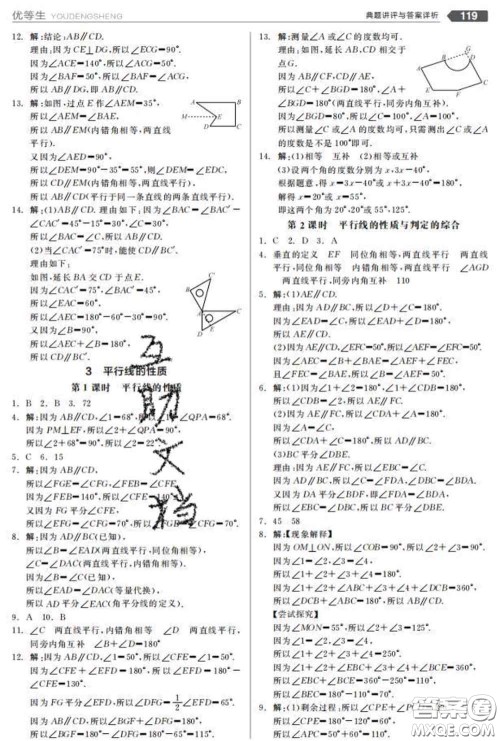 优等生 YOUDENGSHENG
典题讲评与答案详析 119
12. 解:结论:AB∥CD.
理由:因为CE⊥DG,所以∠ECG=90°.
因为∠ACE=140°,所以∠ACG=50°.
因为∠BAF=50°,所以∠BAF=∠ACG.
所以AB∥DG,即AB∥CD.
13. 解:如图,过点E作∠AEM=35°,
所以∠AEM=∠BAE,
所以AB∥EM(内错角相等,两直线
平行).
又因为∠AED=90°,
所以∠DEM=90°-35°=55°,则∠DEM=∠EDC,
所以CD∥EM(内错角相等,两直线平行),
所以AB∥CD(平行于同一条直线的两条直线平行).
14. 解:(1)AB∥CD. 理由如下:因为∠BAC=∠BAC′-
∠CAC′=45°-15°=30°,∠C=30°,
所以∠BAC=∠C,所以AB∥CD.
(2)当∠CAC′=75°时,能使CD∥BC′.
理由如下:
如图,延长BA交CD于点E.
因为∠CAC′=75°,∠BAC′=45°,
所以∠EAC=60°.
所以∠AEC=180°-60°-30°=90°.
因为∠B=90°,
所以∠AEC+∠B=180°,
所以CD∥BC′.
3 平行线的性质
第1课时 平行线的性质
1. B 2. B 3. 72
4. 解:因为AB∥CD,∠1=68°,所以∠1=∠QPA=68°.
因为PM⊥EF,所以∠2+∠QPA=90°.
所以∠2+68°=90°,所以∠2=22°.
5. C 6. 15
7. 解:因为AB∥CD,
所以∠FGE=∠CFG,∠FEB=∠CFE.
因为∠FEB=140°,所以∠CFE=140°.
又因为FG平分∠CFE,
所以∠EFG=∠CFG=70°,所以∠FGE=70°.
8. 解:因为AD∥BC(已知),
所以∠B=∠EAD(两直线平行,同位角相等),
∠C=∠DAC(两直线平行,内错角相等).
又因为∠B=∠C(已知),
所以∠EAD=∠DAC(等量代换),
所以AD平分∠EAC(角平分线的定义).
9. A 10. B
11. ∠C 两直线平行,内错角相等 ∠D 两直线平行,
同旁内角互补 ∠B ∠D
12. 解:因为AB∥CD,∠1=50°,所以∠CFE=∠1=50°.
因为∠CFE+∠EFD=180°,所以∠EFD=180°-
∠CFE=130°.
因为FG平分∠EFD,所以∠DFG=1/2∠EFD=65°.
因为AB∥CD,所以∠BGF+∠DFG=180°,
所以∠BGF=180°-∠DFG=180°-65°=115°.
13. 解:测量∠A或∠C的度数均可.
理由:如图,延长AB,CD相交于
点G.
因为AB∥CF,CD∥AE,
所以∠C+∠BGD=180°,∠A+
∠BGD=180°(两直线平行,同旁内角互补).
因为∠G=80°,所以∠C=100°,∠A=100°.
所以测量∠C或∠A的度数均可,只需测出∠C或∠A
的度数是不是100°即可.
14. 解:(1)相等 互补 (2)相等或互补
(3)设两个角的度数分别为x,3x-40°,
根据题意,得x=3x-40°或x+3x-40°=180°,
解得x=20°或x=55°.
即这两个角为20°,20°或55°,125°.
第2课时 平行线的性质与判定的综合
1. C 2. D 3. A
4. 垂直的定义 EF 同位角相等,两直线平行 ∠AGD
两直线平行,内错角相等 内错角相等,两直线平行
DG 两直线平行,同旁内角互补 110
5. 解:(1)AE∥CD.
理由:因为AD∥BC,所以∠D+∠C=180°.
因为∠EAD=∠C,所以∠EAD+∠D=180°,
所以AE∥CD.
(2)因为AE∥CD,∠EFC=50°,所以∠AEF=∠EFC=50°.
因为∠AEC=∠B+∠BAE=∠AEF+∠FEC,
且∠FEC=∠BAE,所以∠B=∠AEF=50°.
6. 解:(1)因为∠1+∠2=180°,∠2+∠CDB=180°,
所以∠1=∠CDB,所以AE∥FC.
(2)因为AE∥FC,所以∠CDA+∠DAE=180°.
因为∠A=∠C,
所以∠CDA+∠C=180°,所以AD∥BC.
(3)BC平分∠DBE.
理由:因为AE∥FC,所以∠EBC=∠C.
因为AD∥BC,所以∠C=∠FDA,∠DBC=∠BDA.
又因为DA平分∠BDF,即∠FDA=∠BDA,
所以∠EBC=∠DBC,所以BC平分∠DBE.
7. 45 58
8. 解:【现象解释】
因为OM⊥ON,所以∠COB=90°,所以∠2+∠3=90°.
因为∠1=∠2,∠3=∠4,
所以∠1+∠2+∠3+∠4=180°.
因为∠1+∠2+∠3+∠4+∠DCB+∠ABC=360°,所以
∠DCB+∠ABC=180°,所以AB∥CD.
【尝试探究】
因为∠MON=55°,所以∠2+∠3=125°.
因为∠1=∠2,∠3=∠4,所以∠1+∠2+∠3+∠4=250°.
因为∠1+∠2+∠EBC+∠3+∠4+∠BCE=360°,
所以∠EBC+∠BCE=360°-250°=110°.
9. 解:(1)剩余过程:∠CPE+∠PCD=180°,
所以∠CPE=180°-120°=60°.
∠APE=180°-∠PAB=50°.
互助文档